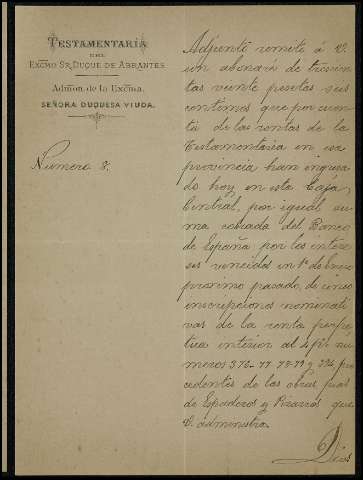 TESTAMENTARÍA
DEL
EXCMO SR. DUQUE DE ABRANTES
Admon de la Excma.
SEÑORA DUQUESA VIUDA.
Número 8.
Adjunto remito á V.
un abonaré de trescien
tas veinte pesetas seis
centimos que por cuen
ta de las rentas de la
Testamentaría en esa
provincia han ingresa
do hoy en esta Caja
Central, por igual su
ma cobrada del Banco
de España por los intere
ses vencidos en 1º de Enero
proximo pasado, de cinco
inscripciones nominati
vas de la renta perpe
tua interior al 4 p% nu
meros 376-77-78-79 y 394 pro
cedentes de las obras pias
de Espaderos y Pizarros que
V. administra.
Dios